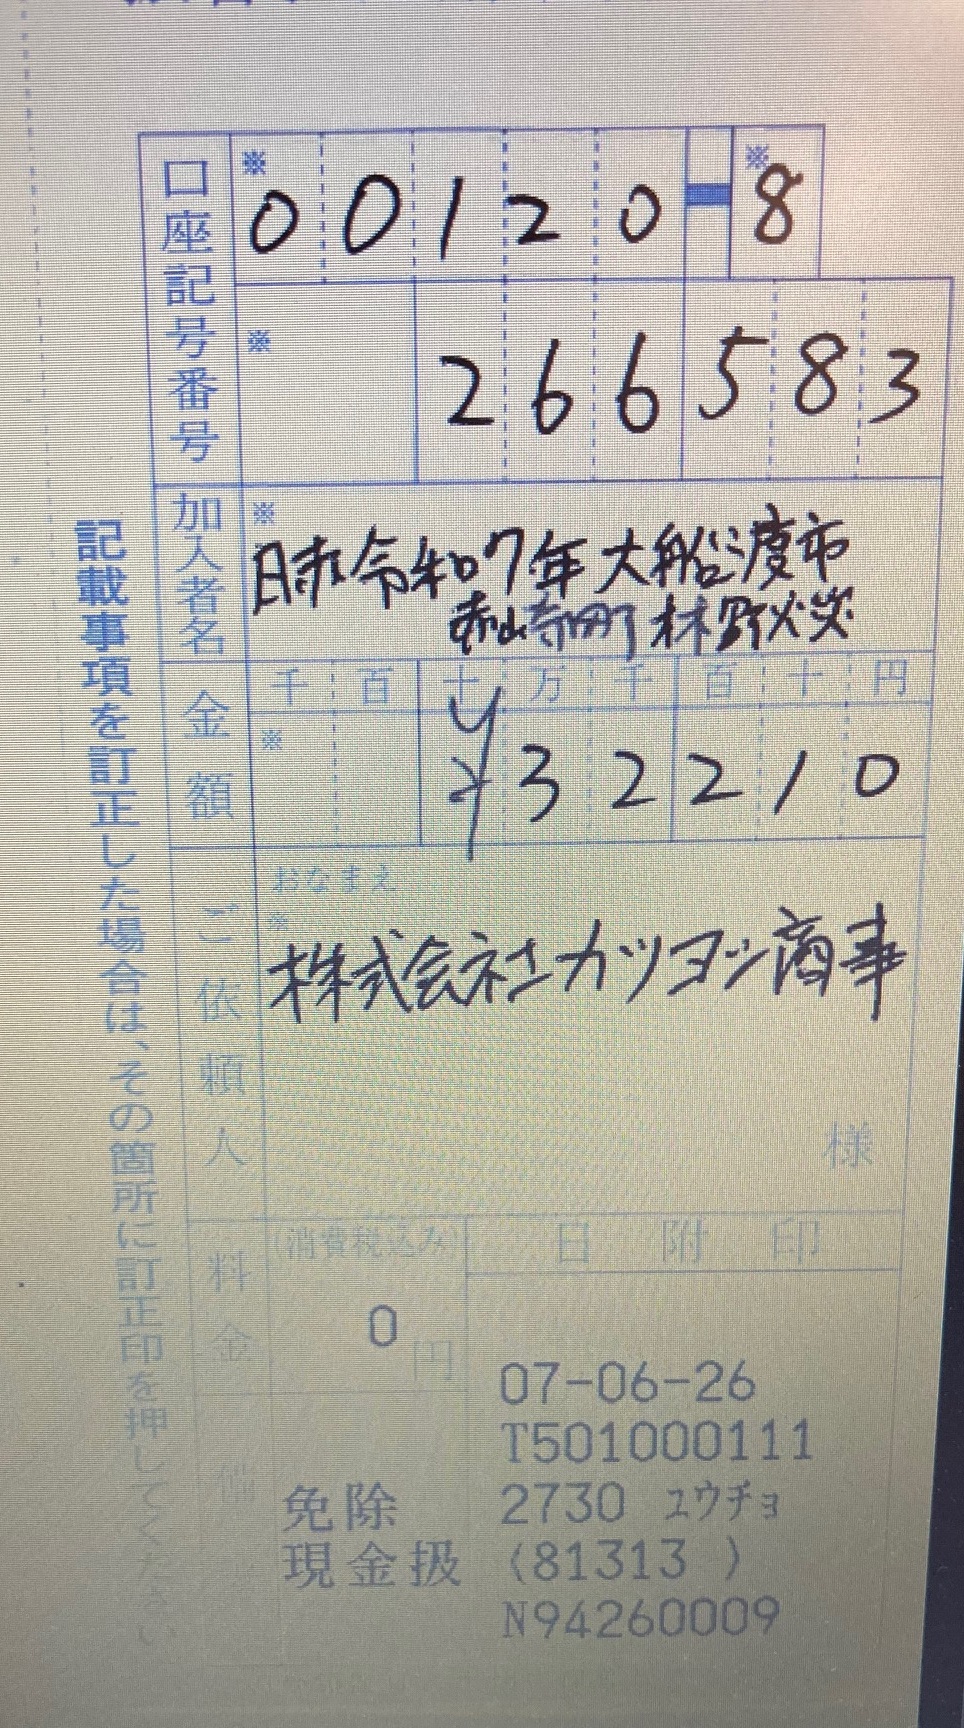 口座記号番号
※ 00120-8 ※
※ 266583
加入者名
※
日赤令和7年大船渡市
赤崎町林野火災
金額
千 百 十 万 千 百 十 円
※ ¥32210
ご依頼人
おなまえ
※
株式会社カツヨシ商事
様
料金
(消費税込み)
0
円
日附印
07-06-26
T501000111
備
免除
2730 ユウチョ
現金扱
(81313 )
N94260009
記載事項を訂正した場合は、その箇所に訂正印を押してください